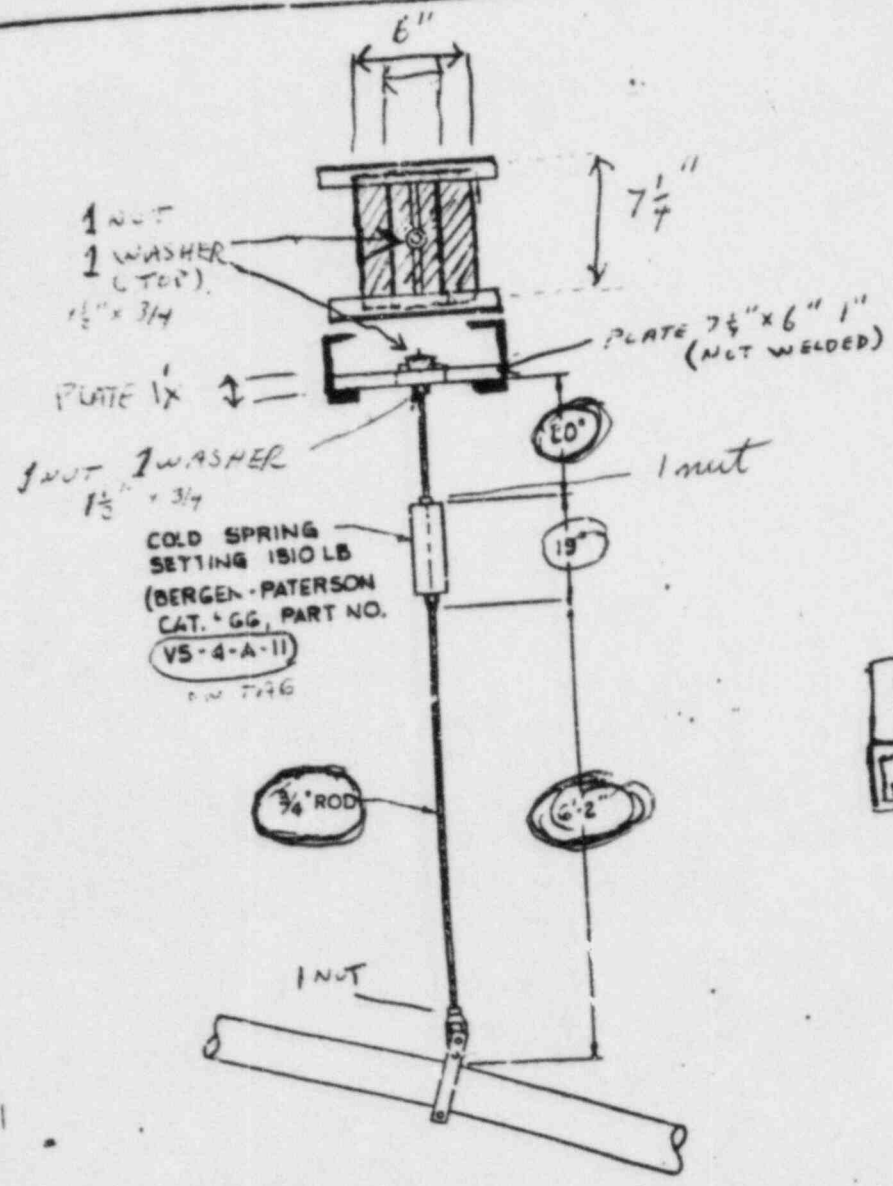 6"
7 1/4"
1 NUT
1 WASHER
(TOP).
1 1/2" x 3/4
PLATE 7 1/4" x 6" 1"
(NOT WELDED)
PLATE 1"x
1 NUT 1 WASHER
1 1/2" x 3/4
1 nut
COLD SPRING
SETTING 1810 LB
(BERGEN-PATERSON
CAT. # 66, PART NO.
VS-4-A-11
19"
3/4" ROD
6'-2"
1 NUT